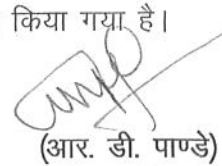 किया गया है।
(आर. डी. पाण्डे)